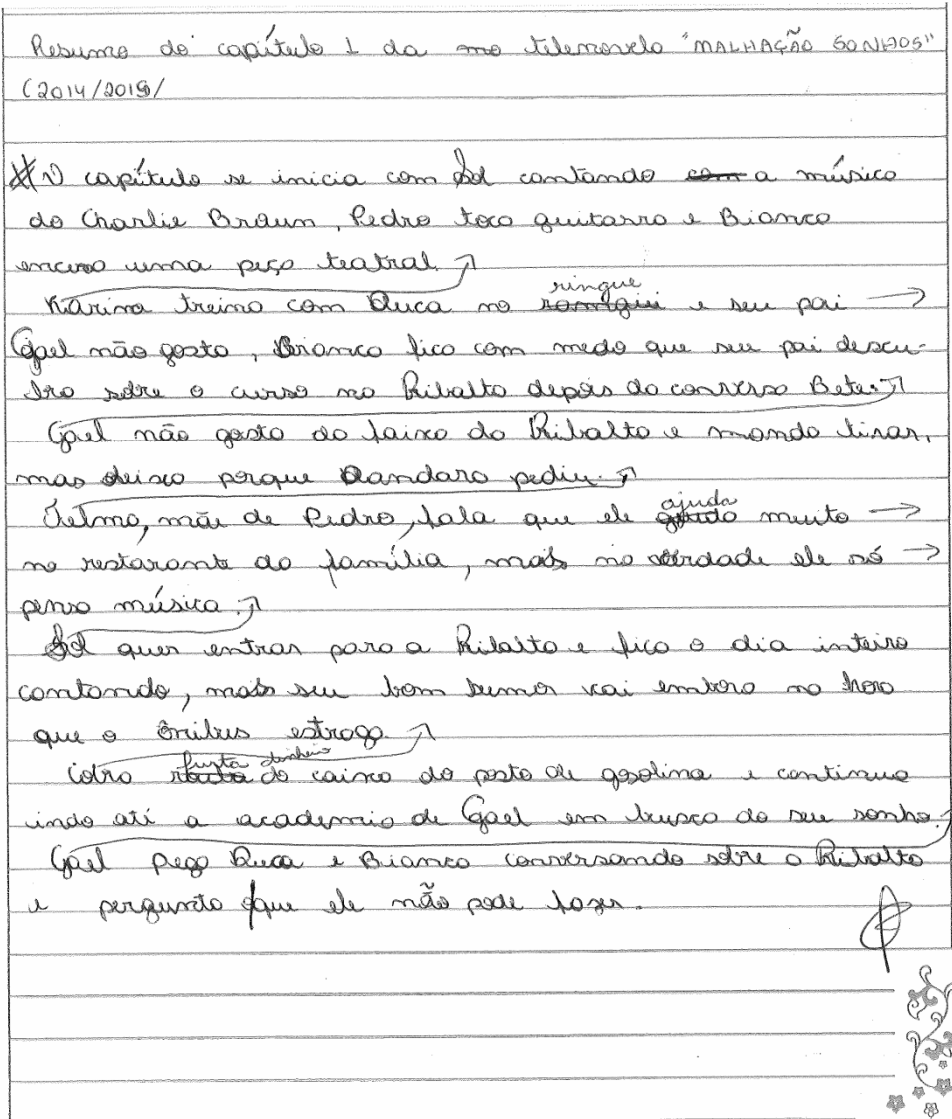 Resumo do capítulo 1 da mo telenovela "MALHAÇÃO SONHOS"
(2014/2015/
O capítulo se inicia com Sol cantando com a música
do Charlie Braun, Pedro toca guitarra e Bianca
encena uma peça teatral.
Karina treina com Duca no ringue e seu pai
Gael não gosta, Bianca fica com medo que seu pai descu-
bra sobre o curso na Ribalta depois da conversa Bete.
Gael não gosta da faixa da Ribalta e manda tirar,
mas deixa porque Dandara pediu.
Delma, mãe de Pedro, fala que ele ajuda muito
no restarante da família, mais na verdade ele só
pensa música.
Sol quer entrar para a Ribalta e fica o dia inteiro
cantando, mais seu bom humor vai embora na hora
que o ônibus estraga.
Cobra furta dinheiro do caixa do posto de gasolina e continua
indo até a academia de Gael em busca do seu sonho.
Gael pega Duca e Bianca conversando sobre a Ribalta
e pergunta que ele não pode fazer.